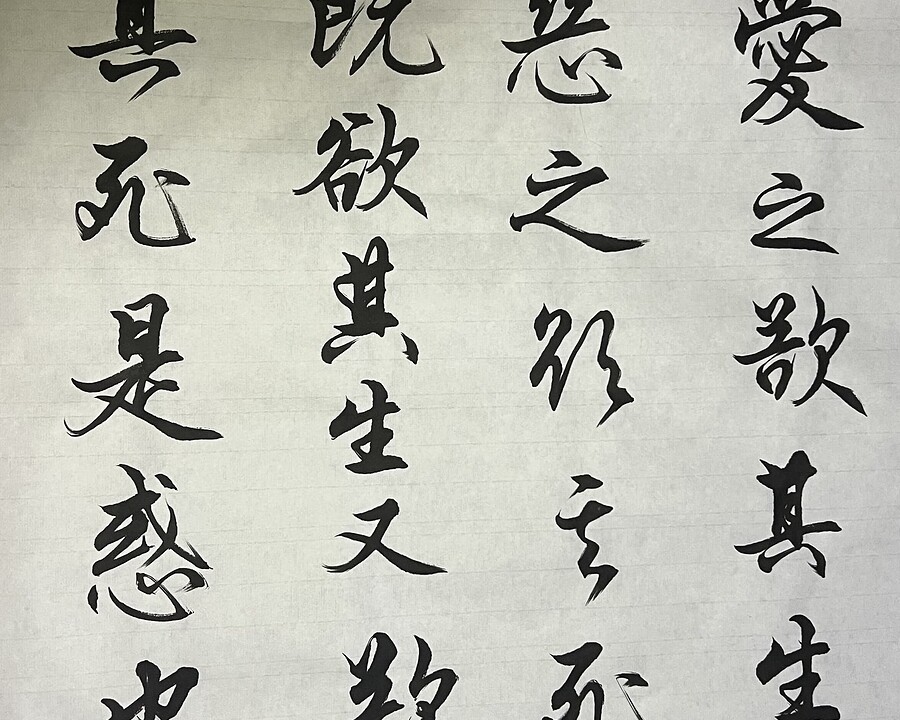 愛之欲其生
惡之欲其死
既欲其生又欲
其死是惑也